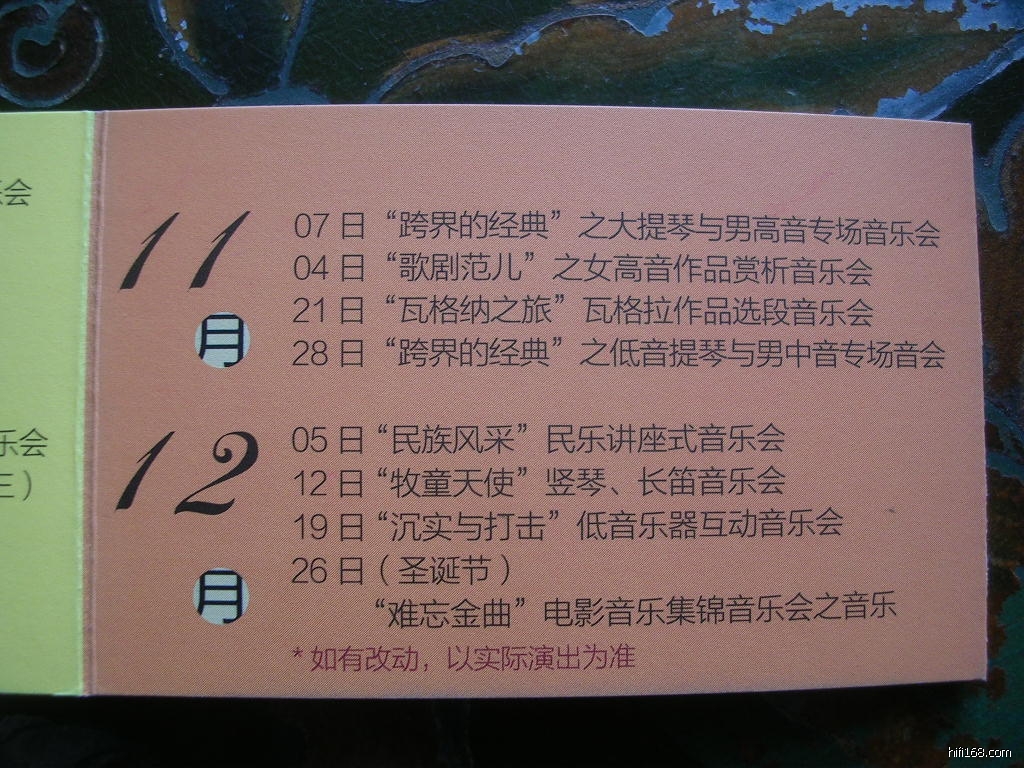 乐会
乐会
三）
11月
07 日 “跨界的经典” 之大提琴与男高音专场音乐会
04 日 “歌剧范儿” 之女高音作品赏析音乐会
21 日 “瓦格纳之旅” 瓦格拉作品选段音乐会
28 日 “跨界的经典” 之低音提琴与男中音专场音会
12月
05 日 “民族风采” 民乐讲座式音乐会
12 日 “牧童天使” 竖琴、长笛音乐会
19 日 “沉实与打击” 低音乐器互动音乐会
26 日（ 圣诞节 ）
“难忘金曲” 电影音乐集锦音乐会之音乐
* 如有改动，以实际演出为准
hifi168.com